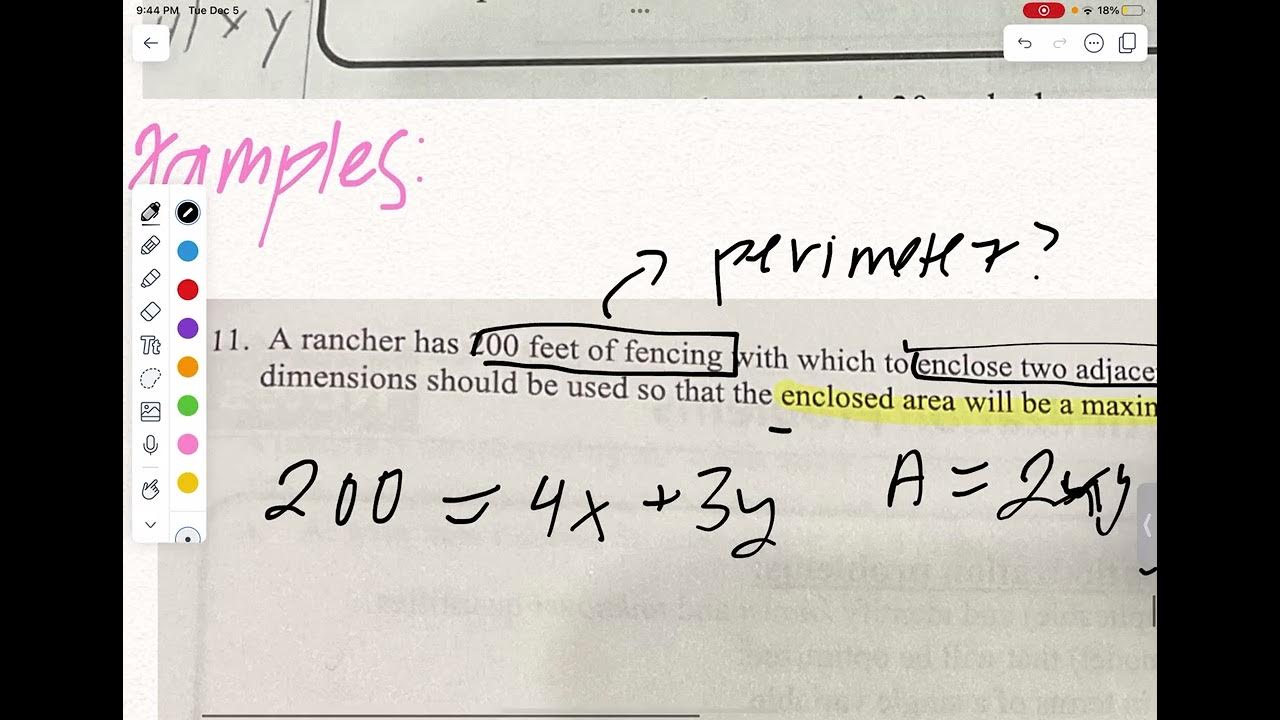 9:44 PM Tue Dec 5
18%
x y
xamples:
perimeter?
11. A rancher has 200 feet of fencing with which to enclose two adjace
dimensions should be used so that the enclosed area will be a maxin
200 = 4x + 3y
A = 2xy
Tt